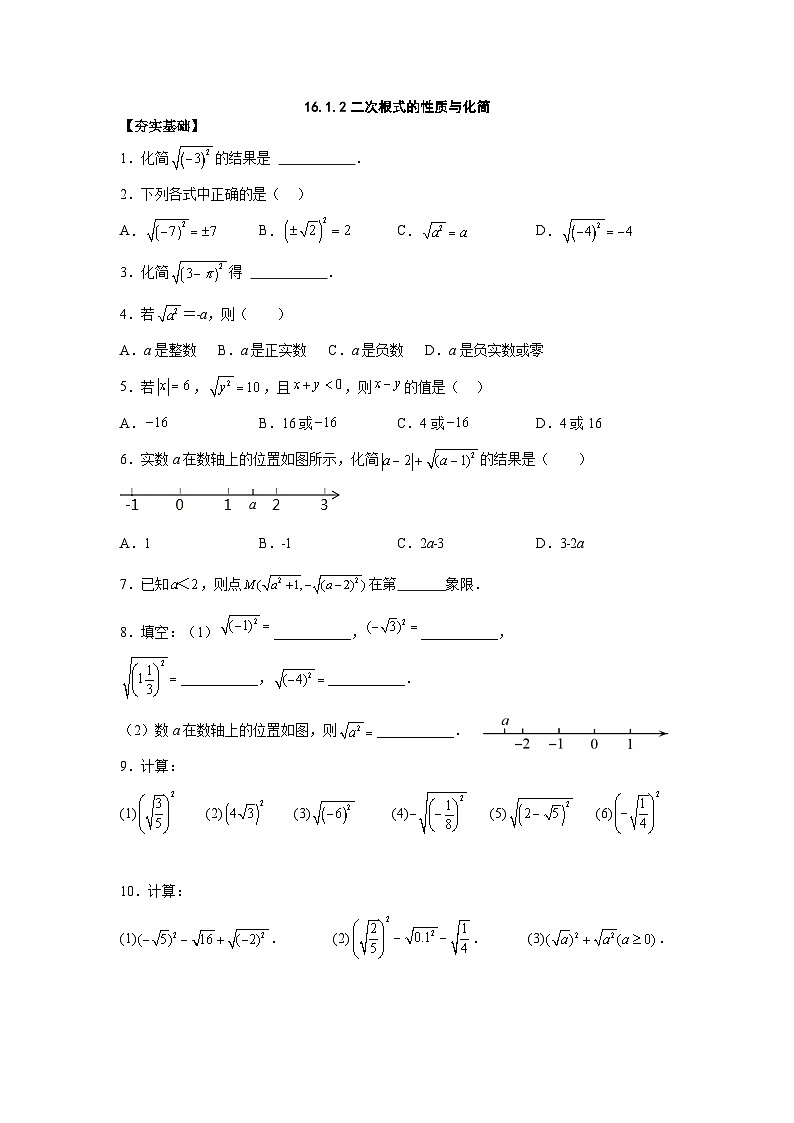 16.1.2二次根式的性质与化简
【夯实基础】
1.化简√(-3)² 的结果是 ___________.
2.下列各式中正确的是（ ）
A.√(-7)² = ±7 B.(±√2)² = 2 C.√a² = a D.√(-4)² = -4
3.化简√(3-π)² 得 ___________.
4.若√a²＝-a,则（ ）
A.a是整数 B.a是正实数 C.a是负数 D.a是负实数或零
5.若|x| = 6,√y² = 10,且x + y < 0,则x - y的值是（ ）
A.-16 B.16或-16 C.4或-16 D.4或16
6.实数a在数轴上的位置如图所示,化简|a - 2| + √(a - 1)² 的结果是（ ）
-1 0 1 a 2 3
A.1 B.-1 C.2a-3 D.3-2a
7.已知a＜2,则点M(√a²+1,-√(a-2)²)在第_______象限.
8.填空:（1）√(-1)² = ___________,(-√3)² = ___________,
√(1 1/3)² = ___________,√(-4)² = ___________.
（2）数a在数轴上的位置如图,则√a² = ___________. a -2 -1 0 1
9.计算:
(1)(√3/5)² (2)(4√3)² (3)√(-6)² (4)-√(-1/8)² (5)√(2-√5)² (6)(-√1/4)²
10.计算:
(1)(-√5)² - √16 + √(-2)². (2)(√2/5)² - √0.1² - √1/4. (3)(√a)² + √a²(a ≥ 0).